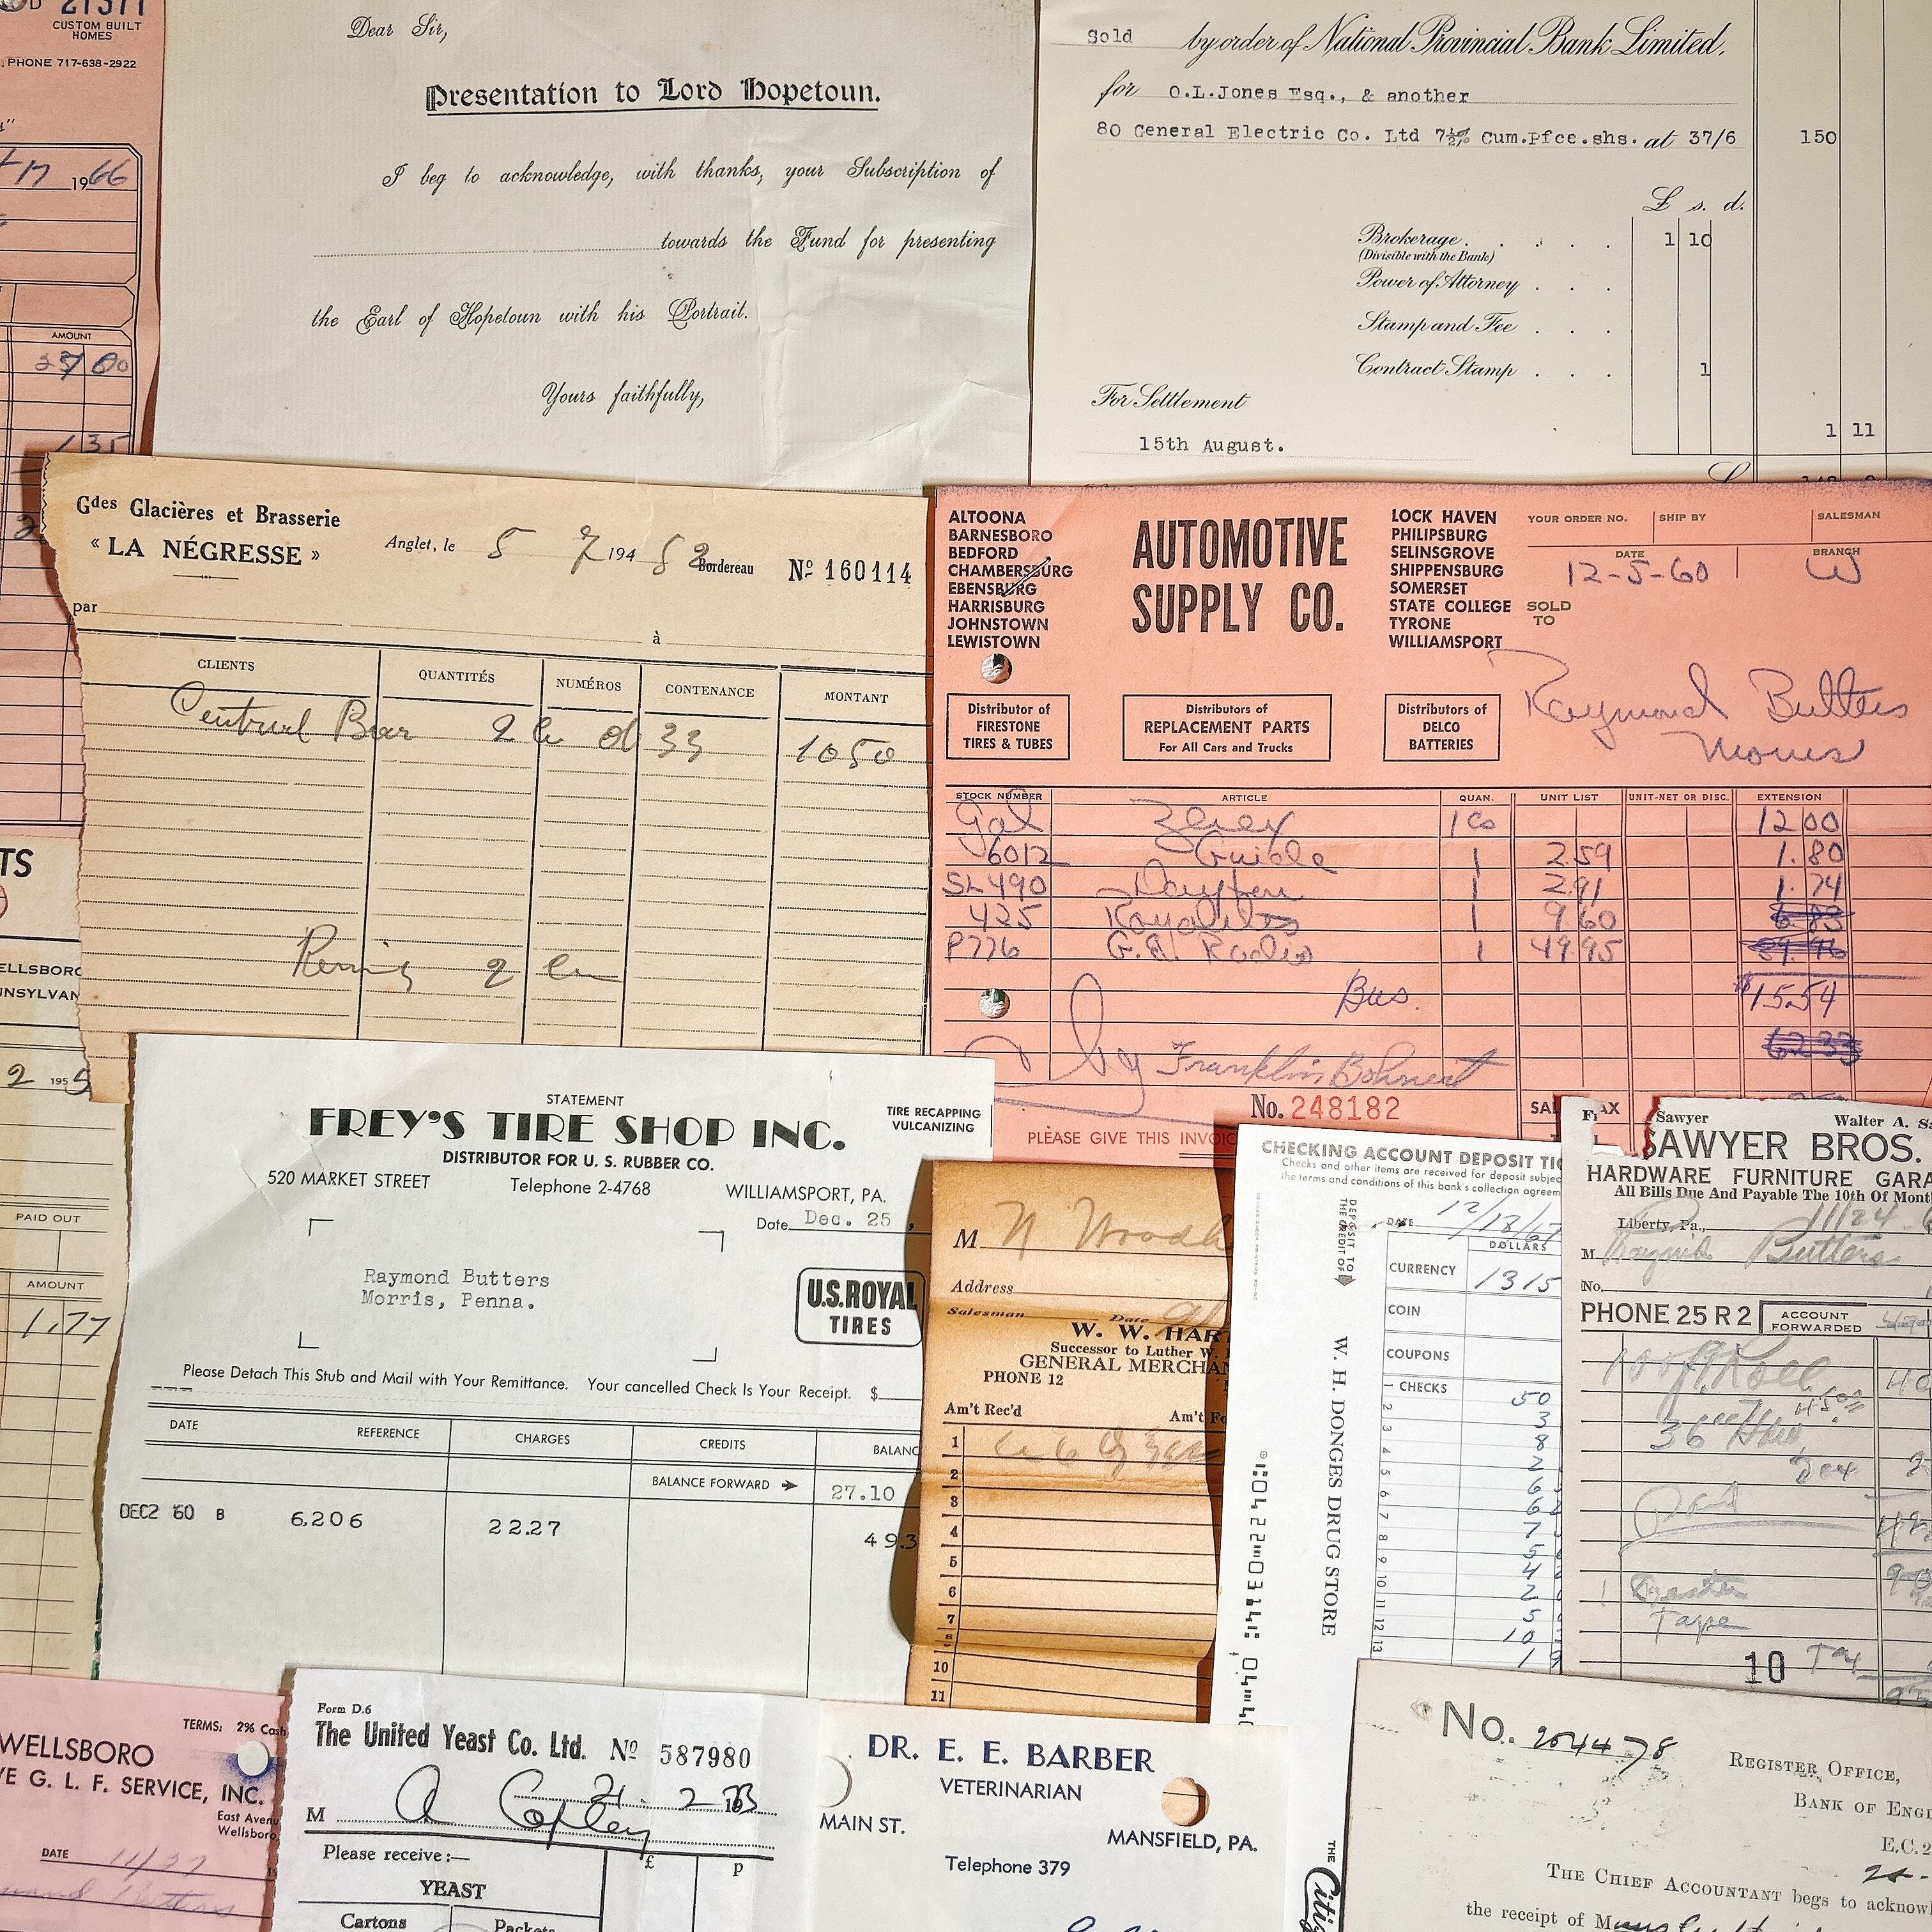 CUSTOM BUILT
HOMES
PHONE 717-638-2922
17 1966
AMOUNT
Dear Sir,
Presentation to Lord Hopetoun.
I beg to acknowledge, with thanks, your Subscription of
towards the Fund for presenting
the Earl of Hopetoun with his Portrait.
Yours faithfully,
Sold by order of National Provincial Bank Limited,
for O.L.Jones Esq., & another
80 General Electric Co. Ltd 7½% Cum.Pfce.shs. at 37/6 150
£ s. d.
Brokerage . . . . 1 10
(Divisible with the Bank)
Power of Attorney . . .
Stamp and Fee . . .
Contract Stamp . . . 1
For Settlement
15th August.
1 11
Gdes Glacières et Brasserie
« LA NÉGRESSE »
Anglet, le 5 7 194 52 Bordereau Nº 160114
par
à
CLIENTS QUANTITÉS NUMÉROS CONTENANCE MONTANT
Central Bar 2 33 1050
2
ALTOONA
BARNESBORO
BEDFORD
CHAMBERSBURG
EBENSBURG
HARRISBURG
JOHNSTOWN
LEWISTOWN
AUTOMOTIVE
SUPPLY CO.
LOCK HAVEN
PHILIPSBURG
SELINSGROVE
SHIPPENSBURG
SOMERSET
STATE COLLEGE
TYRONE
WILLIAMSPORT
YOUR ORDER NO. SHIP BY SALESMAN
DATE BRANCH
12-5-60 W
SOLD
TO
Raymond Butters
Morris
Distributor of
FIRESTONE
TIRES & TUBES
Distributors of
REPLACEMENT PARTS
For All Cars and Trucks
Distributors of
DELCO
BATTERIES
STOCK NUMBER ARTICLE QUAN. UNIT LIST UNIT-NET OR DISC. EXTENSION
Gal Zerex 1 Ca 12 00
6012 Guide 1 2.59 1.80
SL490 1 2.91 1.74
425 1 9.60
P776 G.E. Radio 1 49.95
Bus.
$15.54
by Franklin Bohnert
No. 248182
PLEASE GIVE THIS INVOIC
TS
ELLSBORO
NNSYLVAN
2 195 5
PAID OUT
AMOUNT
1.77
STATEMENT
FREY'S TIRE SHOP INC.
DISTRIBUTOR FOR U. S. RUBBER CO.
TIRE RECAPPING
VULCANIZING
520 MARKET STREET Telephone 2-4768 WILLIAMSPORT, PA.
Date Dec. 25
Raymond Butters
Morris, Penna.
U.S.ROYAL
TIRES
Please Detach This Stub and Mail with Your Remittance. Your cancelled Check Is Your Receipt. $
DATE REFERENCE CHARGES CREDITS BALANC
BALANCE FORWARD 27.10
DEC2 '60 B 6,206 22.27 49.3
M N
Address
Salesman Date
W. W. HAR
Successor to Luther W.
GENERAL MERCHAN
PHONE 12
Am't Rec'd Am't Fo
1
2
3
4
5
6
7
8
10
11
CHECKING ACCOUNT DEPOSIT TIC
Checks and other items are received for deposit subjec
the terms and conditions of this bank's collection agreem
DEPOSIT TO
THE CREDIT OF
DATE 12/18/67
DOLLARS
CURRENCY 1315
COIN
COUPONS
CHECKS
1 50
2 3
3 8
4 2
5 6
6 6
7 7
8 5
9 4
10 2
11 5
12 10
13 1
W. H. DONGES DRUG STORE
THE
Citiz
Sawyer Walter A. Sa
SAWYER BROS.
HARDWARE FURNITURE GARA
All Bills Due And Payable The 10th Of Mont
Liberty, Pa., 11/24
M. Raymond Butters
No.
PHONE 25 R 2 ACCOUNT
FORWARDED
Paid
Tape
10 Tax
TERMS: 2% Cash
WELLSBORO
VE G. L. F. SERVICE, INC.
East Avenu
Wellsboro,
DATE 11/27
Butters
Form D.6
The United Yeast Co. Ltd. Nº 587980
M A Copley
Please receive:—
£ p
YEAST
Cartons Packets
DR. E. E. BARBER
VETERINARIAN
MAIN ST. MANSFIELD, PA.
Telephone 379
No. 204478
REGISTER OFFICE,
BANK OF ENGL
E.C.2
THE CHIEF ACCOUNTANT begs to acknow
the receipt of M